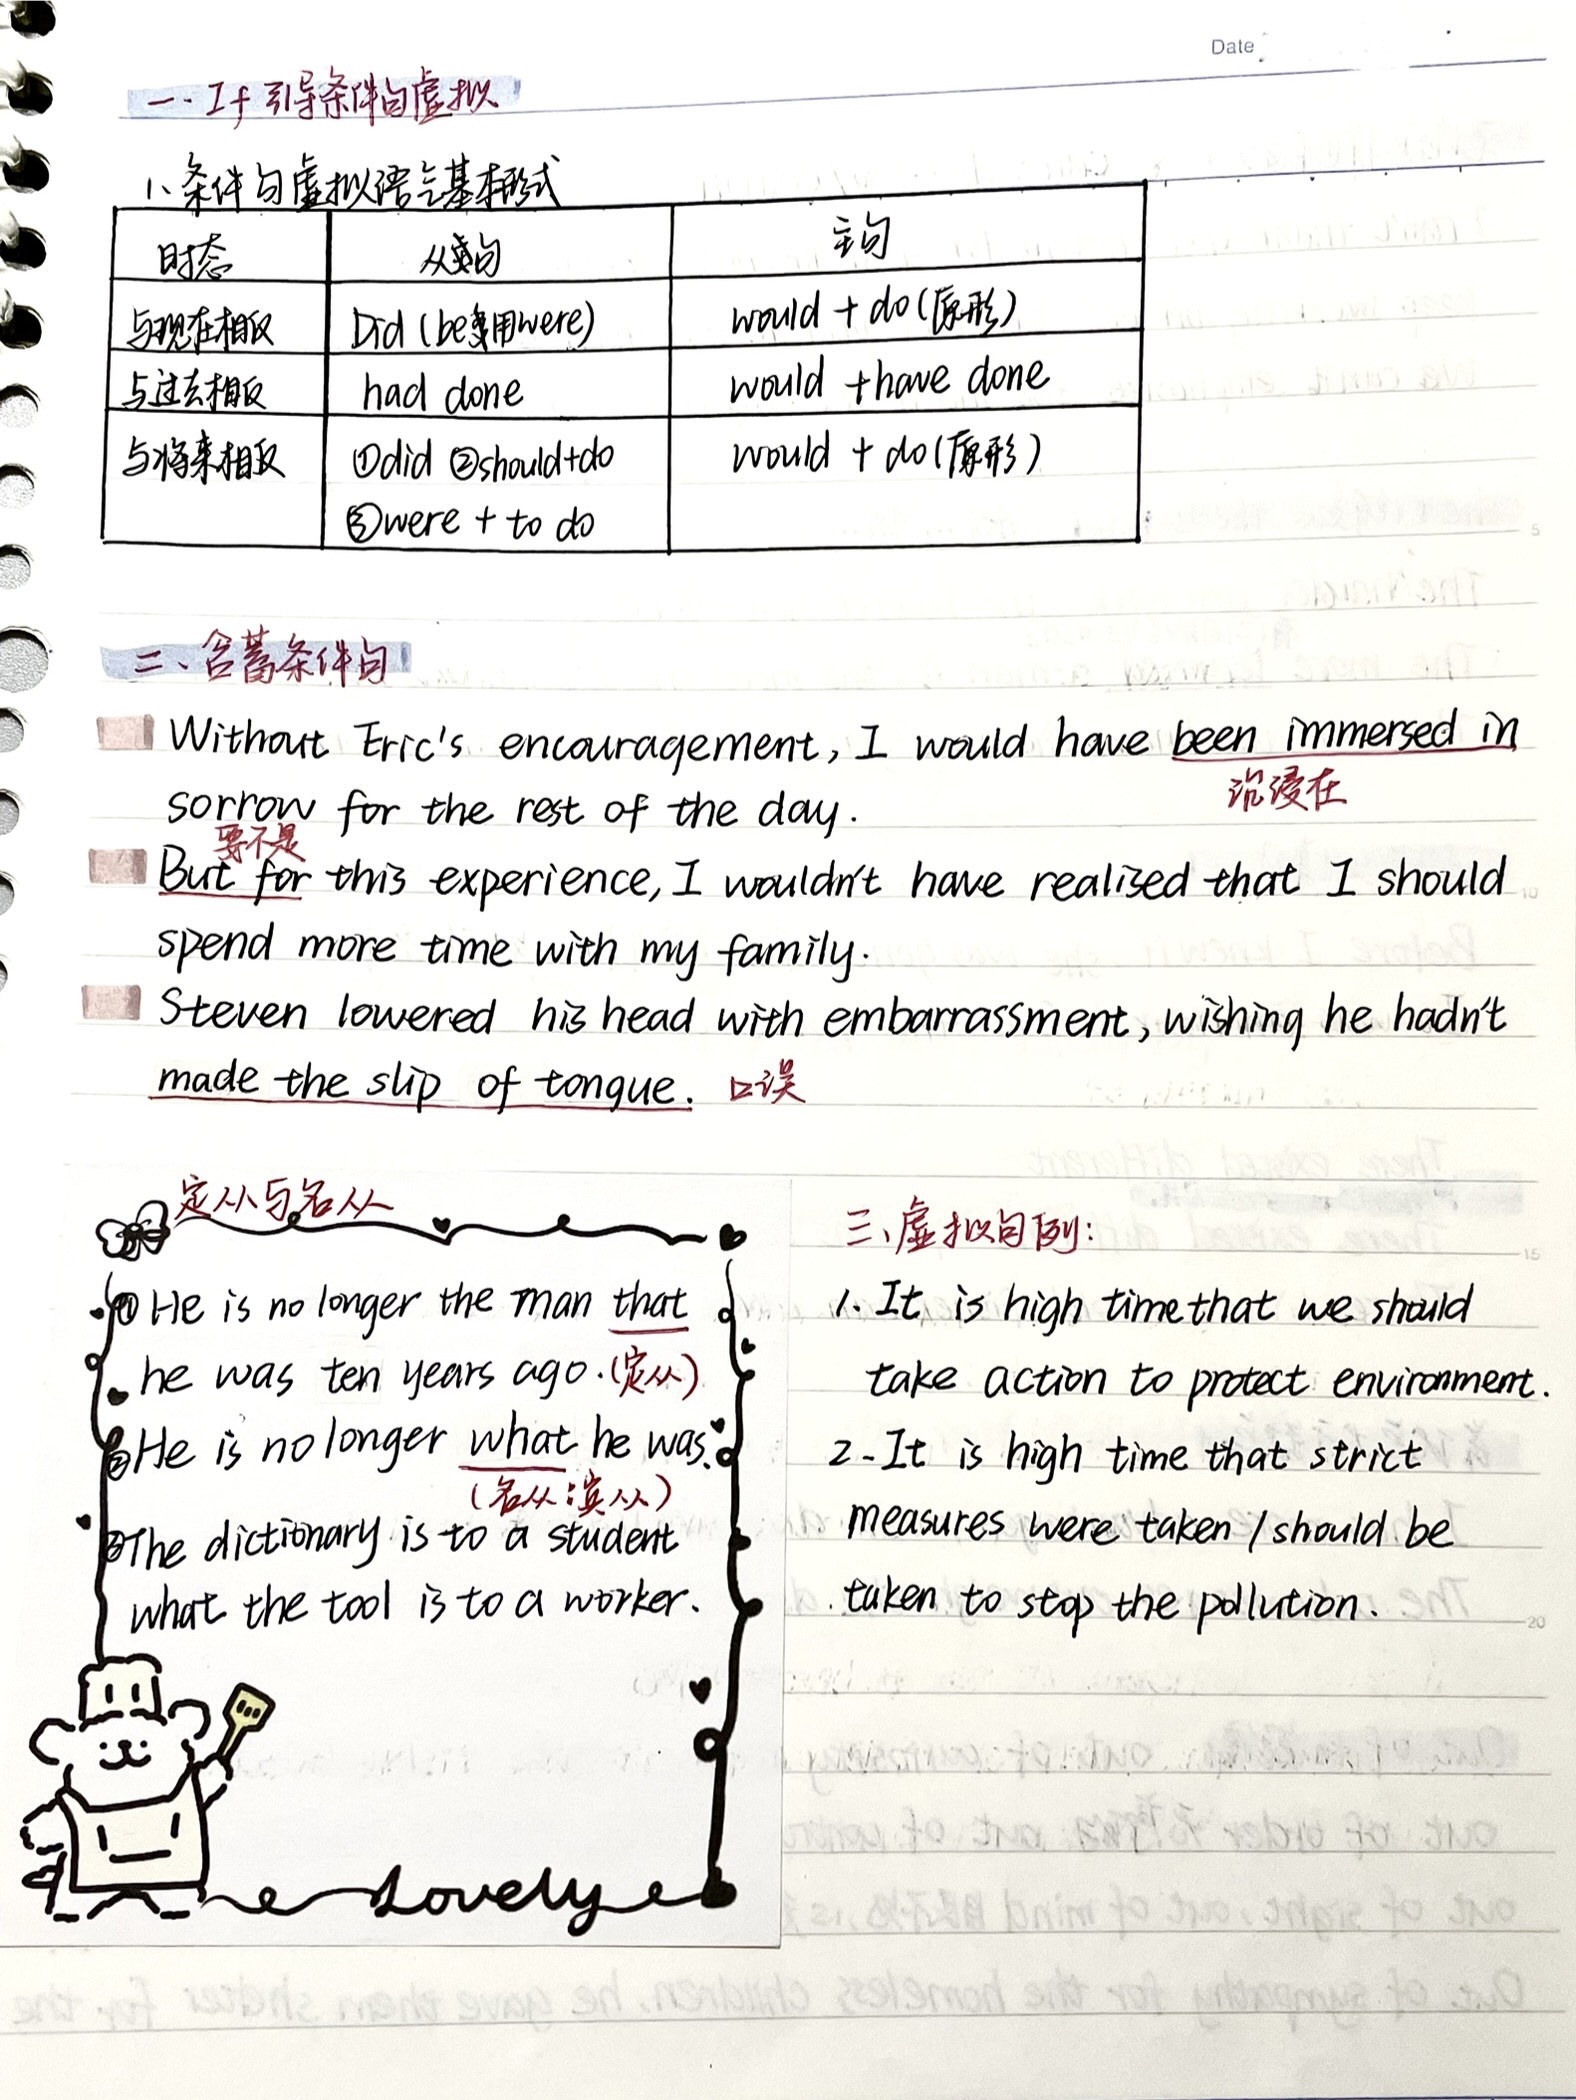 Date
一.If引导条件句虚拟
1、条件句虚拟语气基本形式
时态 从句 主句
与现在相反 Did (be用were) would + do(原形)
与过去相反 had done would +have done
与将来相反 ①did ②should+do would + do(原形)
③were + to do
二、含蓄条件句
Without Eric's encouragement, I would have been immersed in
沉浸在
sorrow for the rest of the day.
要不是
But for this experience, I wouldn't have realised that I should
spend more time with my family.
Steven lowered his head with embarrassment, wishing he hadn't
made the slip of tongue. 口误
定从与名从
①He is no longer the man that
he was ten years ago.(定从)
②He is no longer what he was.
(名从:宾从)
③The dictionary is to a student
what the tool is to a worker.
Lovely
三、虚拟句例:
1. It is high time that we should
take action to protect environment.
2-It is high time that strict
measures were taken / should be
taken to stop the pollution.